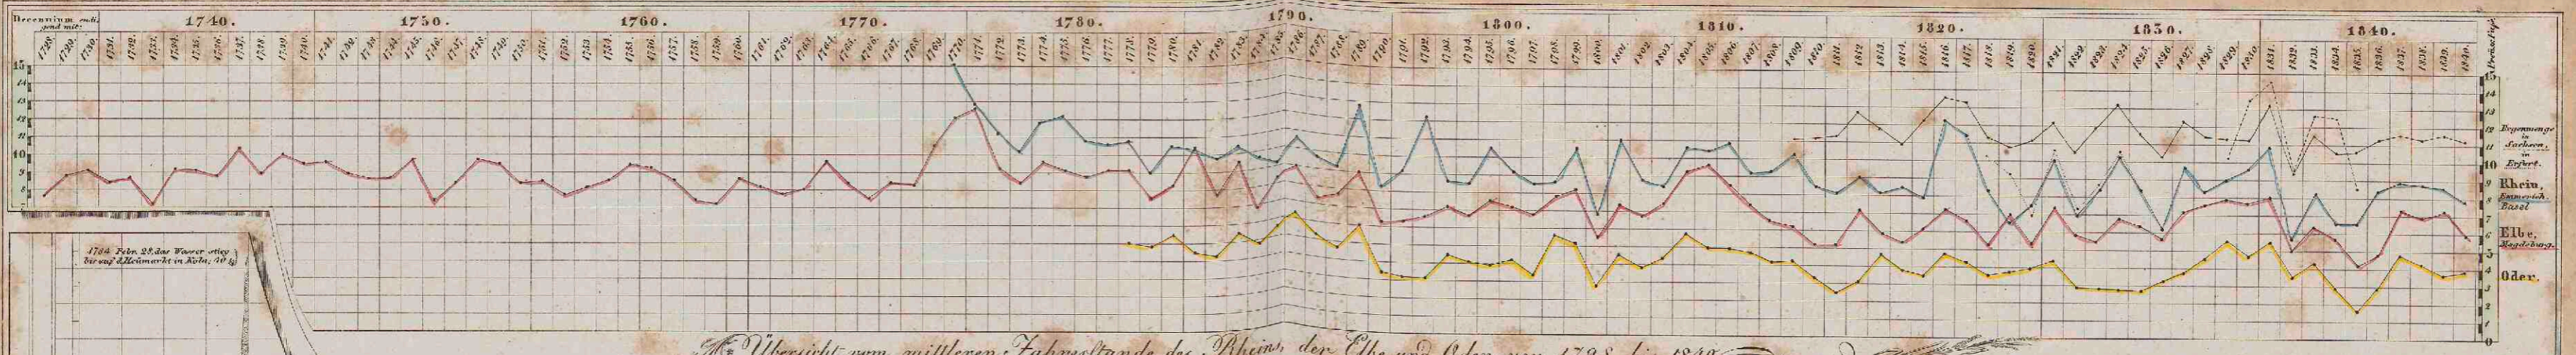 Decennium endi-
gend mit:
1740. 1750. 1760. 1770. 1780. 1790. 1800. 1810. 1820. 1830. 1840.
1728. 1729. 1730. 1731. 1732. 1733. 1734. 1735. 1736. 1737. 1738. 1739. 1740. 1741. 1742. 1743. 1744. 1745. 1746. 1747. 1748. 1749. 1750. 1751. 1752. 1753. 1754. 1755. 1756. 1757. 1758. 1759. 1760. 1761. 1762. 1763. 1764. 1765. 1766. 1767. 1768. 1769. 1770. 1771. 1772. 1773. 1774. 1775. 1776. 1777. 1778. 1779. 1780. 1781. 1782. 1783. 1784. 1785. 1786. 1787. 1788. 1789. 1790. 1791. 1792. 1793. 1794. 1795. 1796. 1797. 1798. 1799. 1800. 1801. 1802. 1803. 1804. 1805. 1806. 1807. 1808. 1809. 1810. 1811. 1812. 1813. 1814. 1815. 1816. 1817. 1818. 1819. 1820. 1821. 1822. 1823. 1824. 1825. 1826. 1827. 1828. 1829. 1830. 1831. 1832. 1833. 1834. 1835. 1836. 1837. 1838. 1839. 1840.
15
14
13
12
11
10
9
8
7
15
14
13
12
11
10
9
8
7
6
5
4
3
2
1
0
Regenmenge
in
Sachsen,
in
Erfurt.
Rhein,
Emmerich.
Basel
Elbe,
Magdeburg.
Oder.
1784 Febr. 28. das Wasser stieg
bis auf d. Heumarkt in Köln; 40
Übersicht vom mittleren Jahresstande des Rheins, der Elbe und Oder von 1728 bis 1840